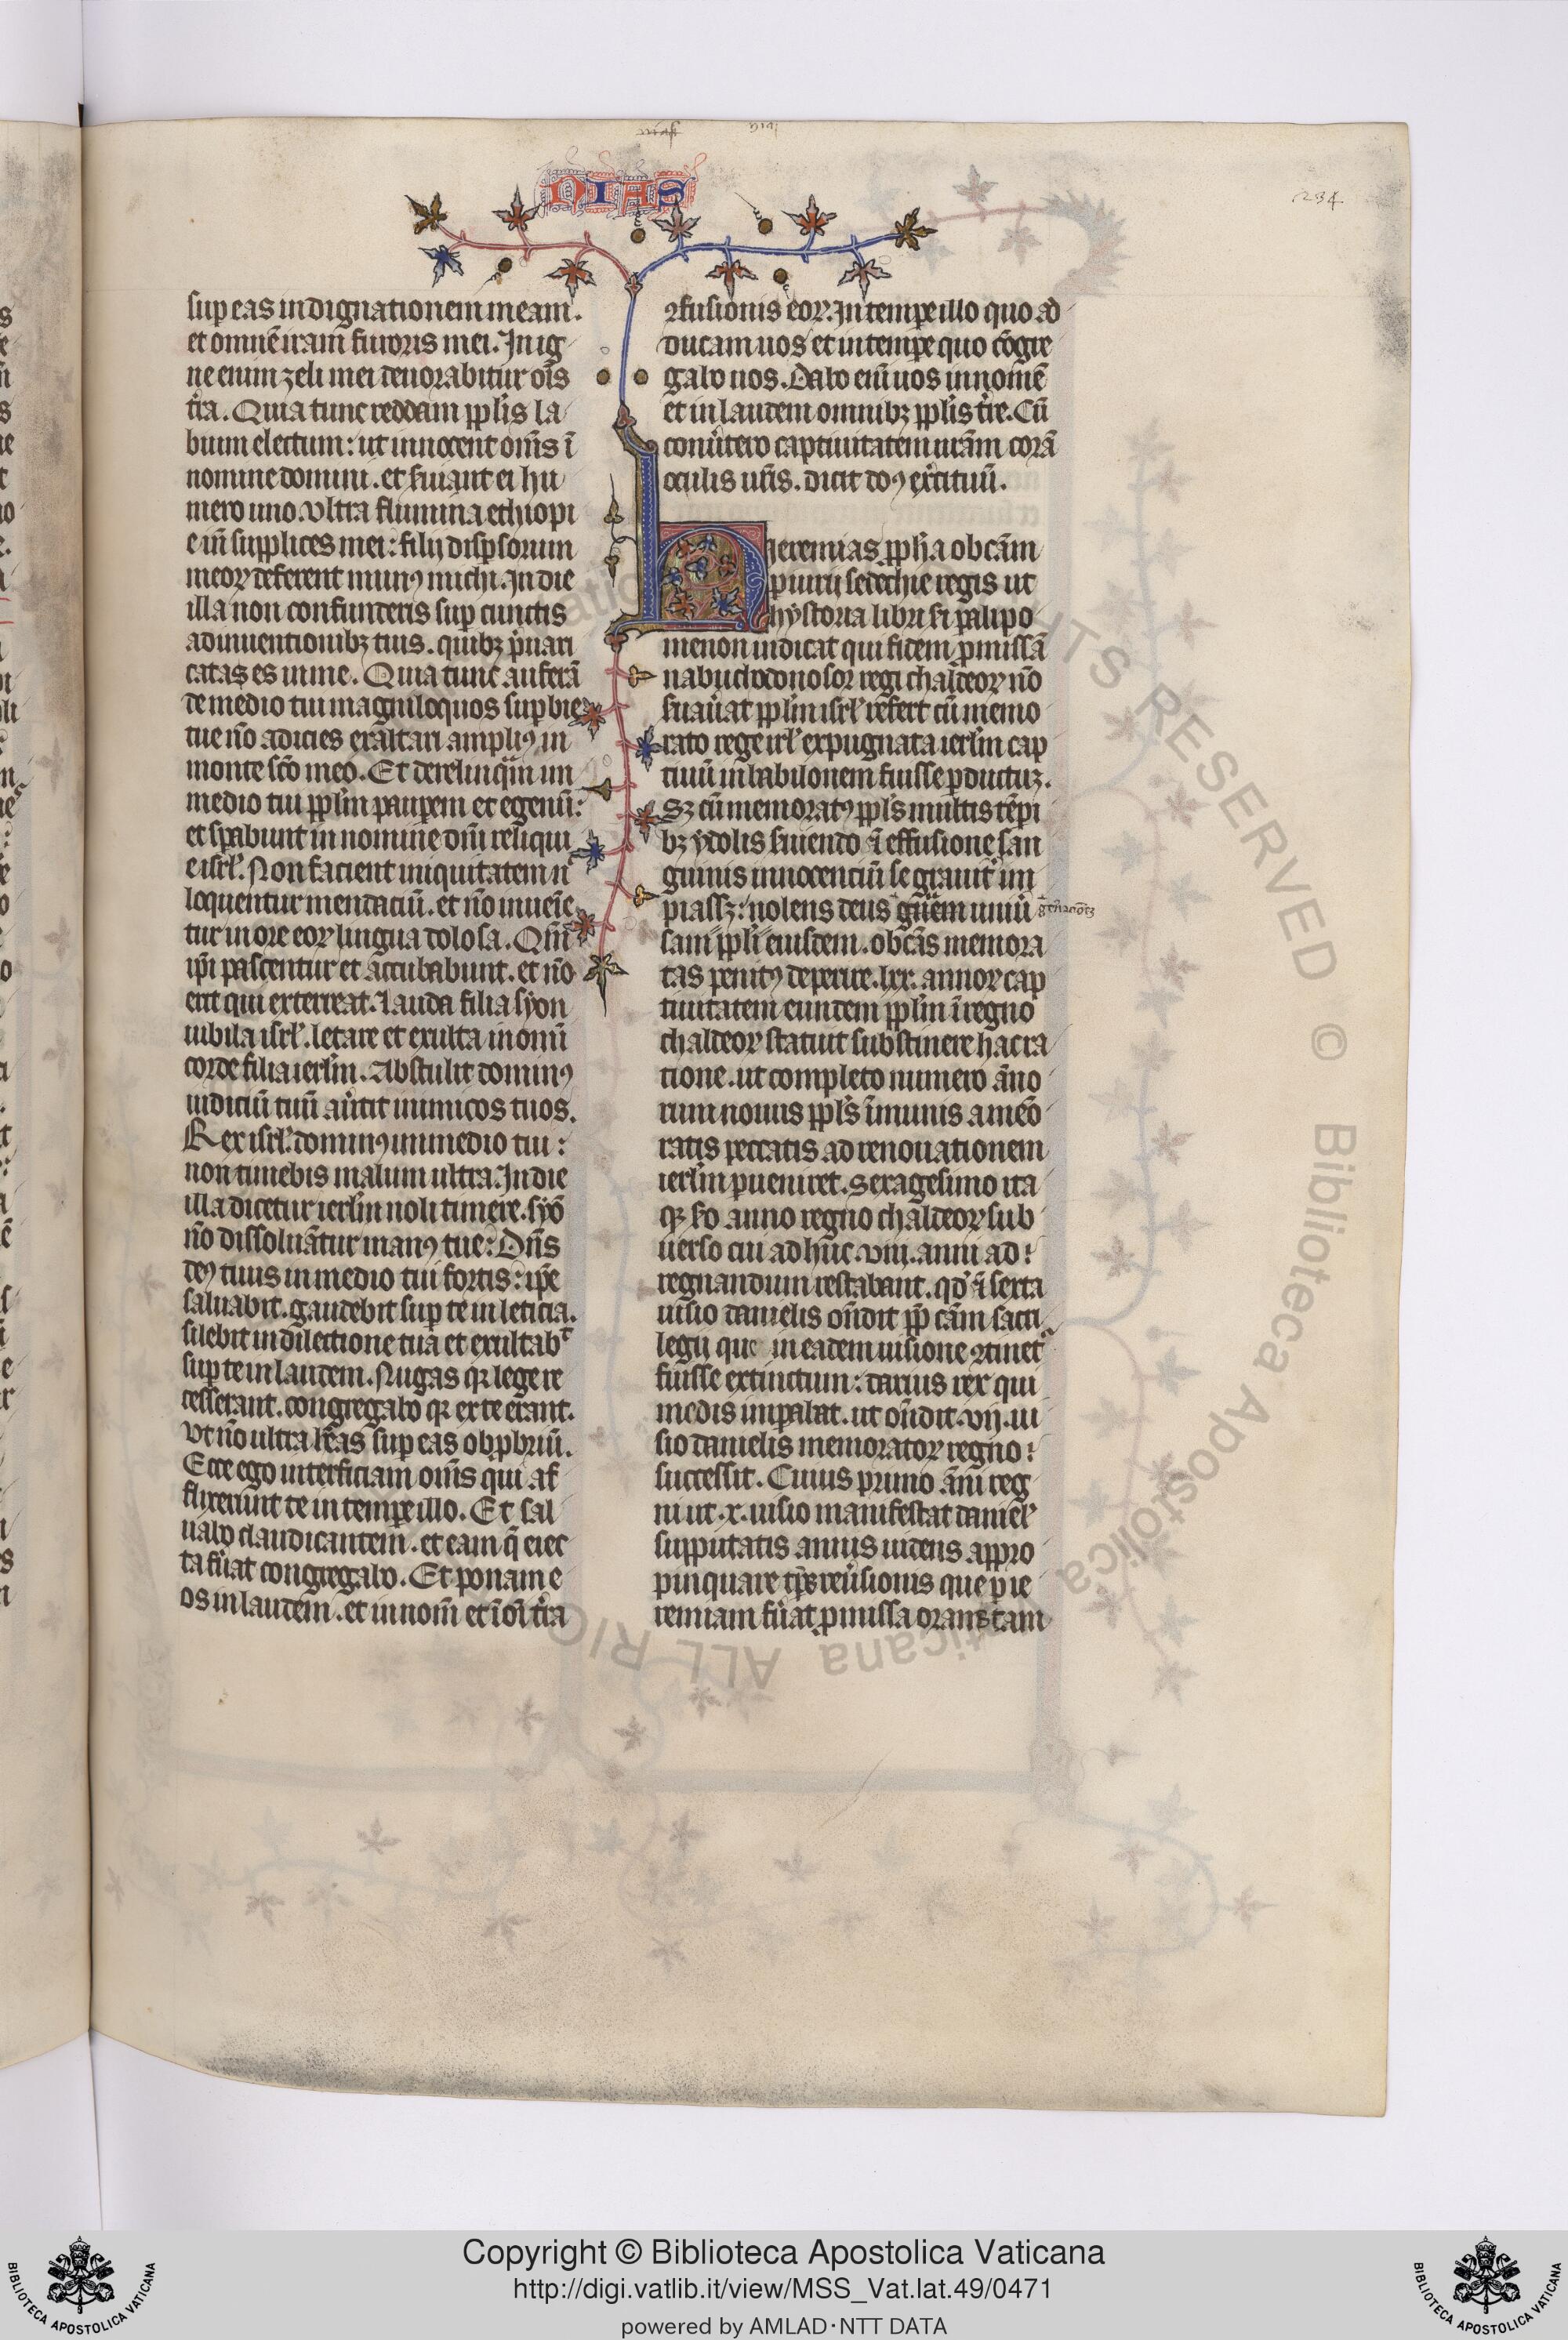 NIAS
234
sup eas indignationem meam.
et omnē iram furoris mei. In ig
ne enim zeli mei deuorabitur oīs
t͛ra. Quia tunc reddam ppl̄is la
bium electum: ut inuocent om̄s ī
nomine domini. et s͛uiant ei hu
mero uno. Vltra flumina ethiopi
e in̄ supplices mei: filij dispsorum
meoꝝ deferent munꝰ michi. In die
illa non confunderis sup cunctis
adinuentionibꝫ tuis. quibꝫ p̄uari
catas es in me. Quia tunc auferā
de medio tui magniloquos supbie
tue nō adicies exaltari ampliꝰ in
monte sc̄o meo. Et derelinquā in
medio tui ppl̄m paupem et egenū:
et spabunt in nomine dn̄i reliqui
e isrl̄. Non facient iniquitatem n̄
loquentur mendaciū. et nō inueīe
tur in ore eoꝝ lingua dolosa. Qm̄
ip̄i pascentur et accubabunt. et nō
erit qui exterreat. Lauda filia syon
iubila isrl̄. letare et exulta in omī
corde filia ierl̄m. Abstulit dominꝰ
iudiciū tuū au͛tit inimicos tuos.
Rex isrl̄ dominꝰ in medio tui:
non timebis malum ultra. In die
illa dicetur ierl̄m noli timere. syō
nō dissoluātur manꝰ tue: Dn̄s
deꝰ tuus in medio tui fortis: ip̄e
saluabit. gaudebit sup te in leticia.
silebit in dilectione tua et exultabᵗ
sup te in laudem. Nugas qꝫ lege re
cesserant. congregabo qꝫ ex te erant.
Vt nō ultra hēas sup eas obpbriū.
Ecce ego interficiam om̄s qui af
flixerunt te in tempe illo. Et sal
uabo claudicantem. et eam q̄ eiec
ta fu͛at congregabo. Et ponam e
os in laudem. et in nom̄ et ī oī t͛ra
ꝯfusionis eoꝝ. In tempe illo quo ad
ducam uos et in tempe quo cōgre
gabo uos. Dabo eni uos in nomē
et in laudem omnibꝫ ppl̄is t͛re. Cū
conu͛tero captiuitatem ur̄am corā
oculis ur̄is. dicit doꝰ ex͛cituū.
Hieremias pph̄a ob cām
piurij sedechie regis ut
hystoria libri s͛i palipo
menon indicat qui fidem pmissā
nabuchodonosor regi chaldeoꝝ nō
s͛uau͛at ppl̄m isrl̄ refert cū memo
rato rege irl̄ expugnata ierl̄m cap
tiuū in babilonem fuisse pductuꝫ.
Sꝫ cū memoratꝰ ppl̄s multis tēpi
bꝫ ydolis s͛uiendo ꝗ effusione san
guinis innocenciū se grauit͛ im
piassꝫ: nolens deus gn̄em uniū
sam ppl̄i eiusdem. ob cās memora
tas penitꝰ deperire. lxx. annoꝝ cap
tiuitatem eundem ppl̄m ī regno
chaldeoꝝ statuit substinere hac ra
tione. ut completo numero āno
rum nouus ppl̄s īmunis a memō
ratis peccatis ad renouationem
ierl̄m pueniret. Sexagesimo ita
qꝫ s͛o anno regno chaldeoꝝ sub
uerso cui ad huc. viij. anni ad:
regnandum restabant. qd̄ ꝗ sexta
uisio danielis on̄dit pp̄ cām sacri
legij que in eadem uisione ꝯtinet͛
fuisse extinctum: darius rex qui
medis impabat. ut on̄dit. vij. ui
sio danielis memoratoꝝ regno:
successit. Cuius primo āni reg
ni ut. x. uisio manifestat daniel̄
supputatis annis uidens appro
pinquare tp̄s reu͛sionis que p ie
remiam fu͛at pmissa orans tam
Copyright © Biblioteca Apostolica Vaticana
http://digi.vatlib.it/view/MSS_Vat.lat.49/0471
powered by AMLAD·NTT DATA
BIBLIOTECA APOSTOLICA VATICANA
BIBLIOTECA APOSTOLICA VATICANA